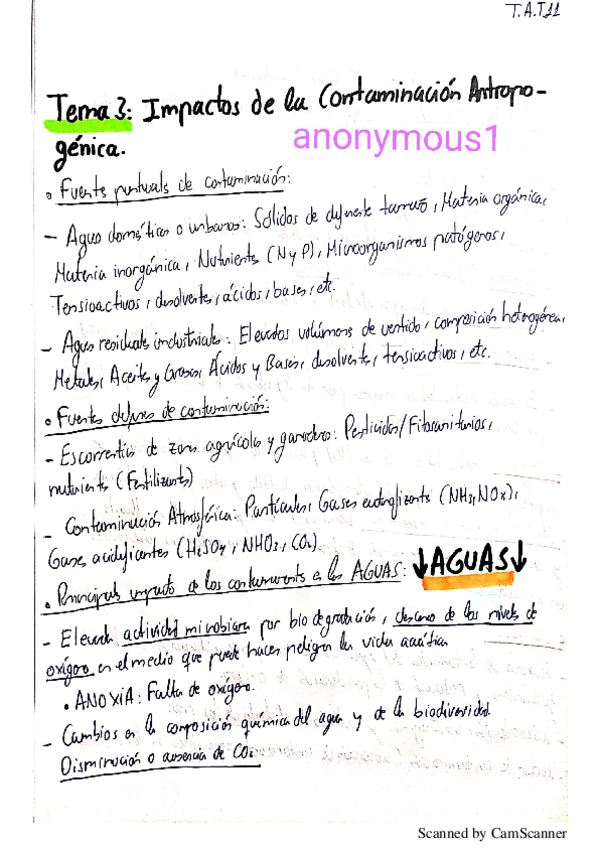 T.A.T11
Tema 3: Impactos de la Contaminación Antropo-
génica.
anonymous1
• Fuentes puntuales de contaminación:
- Aguas domésticas o urbanas: Sólidos de diferente tamaño, Materia orgánica,
Materia inorgánica, Nutrientes (N y P), Microorganismos patógenos,
Tensioactivos, disolventes, ácidos, bases, etc.
- Aguas residuales industriales: Elevados volúmenes de vertido, composición heterogénea,
Metales, Aceites y Grasas, Ácidos y Bases, disolventes, tensioactivos, etc.
• Fuentes difusas de contaminación:
- Escorrentías de zonas agrícolas y ganaderas: Pesticidas/Fitosanitarios,
nutrientes (Fertilizantes)
- Contaminación Atmosférica: Partículas, Gases (NH3, NOx),
Gases acidificantes (H2SO4, NHO3, CO2).
• Principales impactos de los contaminantes en las AGUAS: ↓AGUAS↓
- Elevada actividad microbiana por biodegradación, descenso de los niveles de
oxígeno en el medio que puede hacer peligrar la vida acuática
• ANOXIA: Falta de oxígeno.
- Cambios en la composición química del agua y de la biodiversidad
Disminución o ausencia de CO2
Scanned by CamScanner